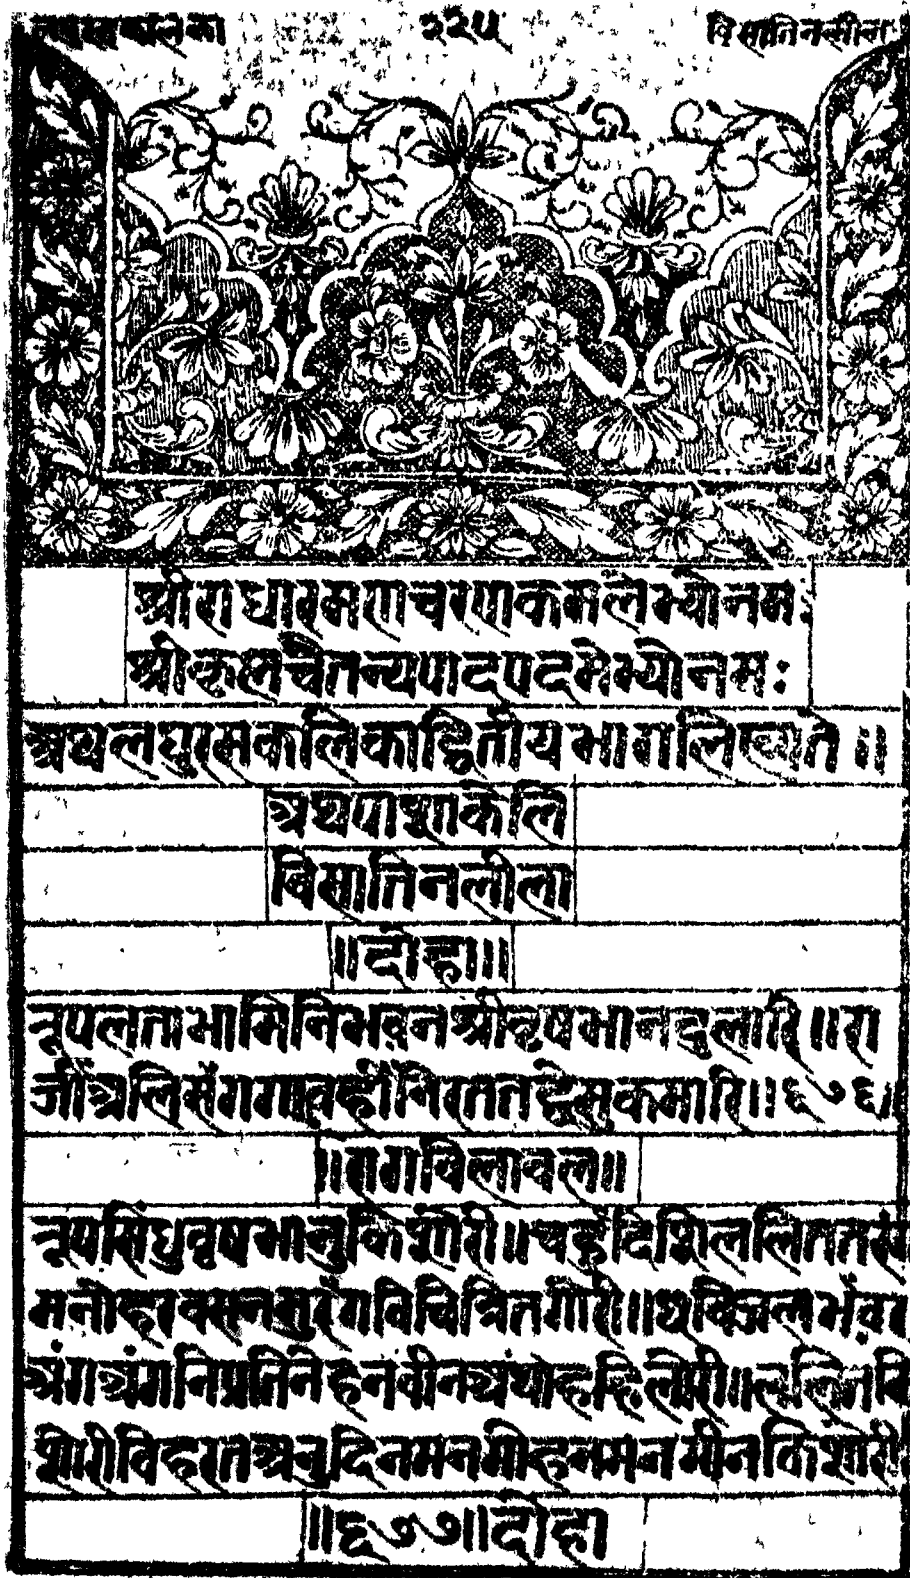 २२५ विसातिनलीला
श्रीराधारमणचरणकमलेभ्योनमः
श्रीकृष्णचैतन्यपादपदमेभ्योनमः
अथलघुरसकलिकाद्वितीयभागलिष्यते ॥
अथपाशाकेलि
विसातिनलीला
॥दोहा॥
रूपलताभामिनिभवनश्रीवृषभानदुलारि॥रा
जीं अलिसंगगावहीं निरततनद्वैसुकमारि॥६७६॥
॥रागविलावल॥
रूपसिंधुवृषभानुकिशोरी॥चहुंदिशिललिततरंग
मनोहरवसनसुरंगविचित्रितगोरी॥छविजलभंवर
अंगअंगनिप्रतिनेहनवीनअथाहहिलोरी॥ललितवि
शोरीविहरतअनुदिनमनमोहनमनमीनकिशोरी॥
॥६७७॥दोहा